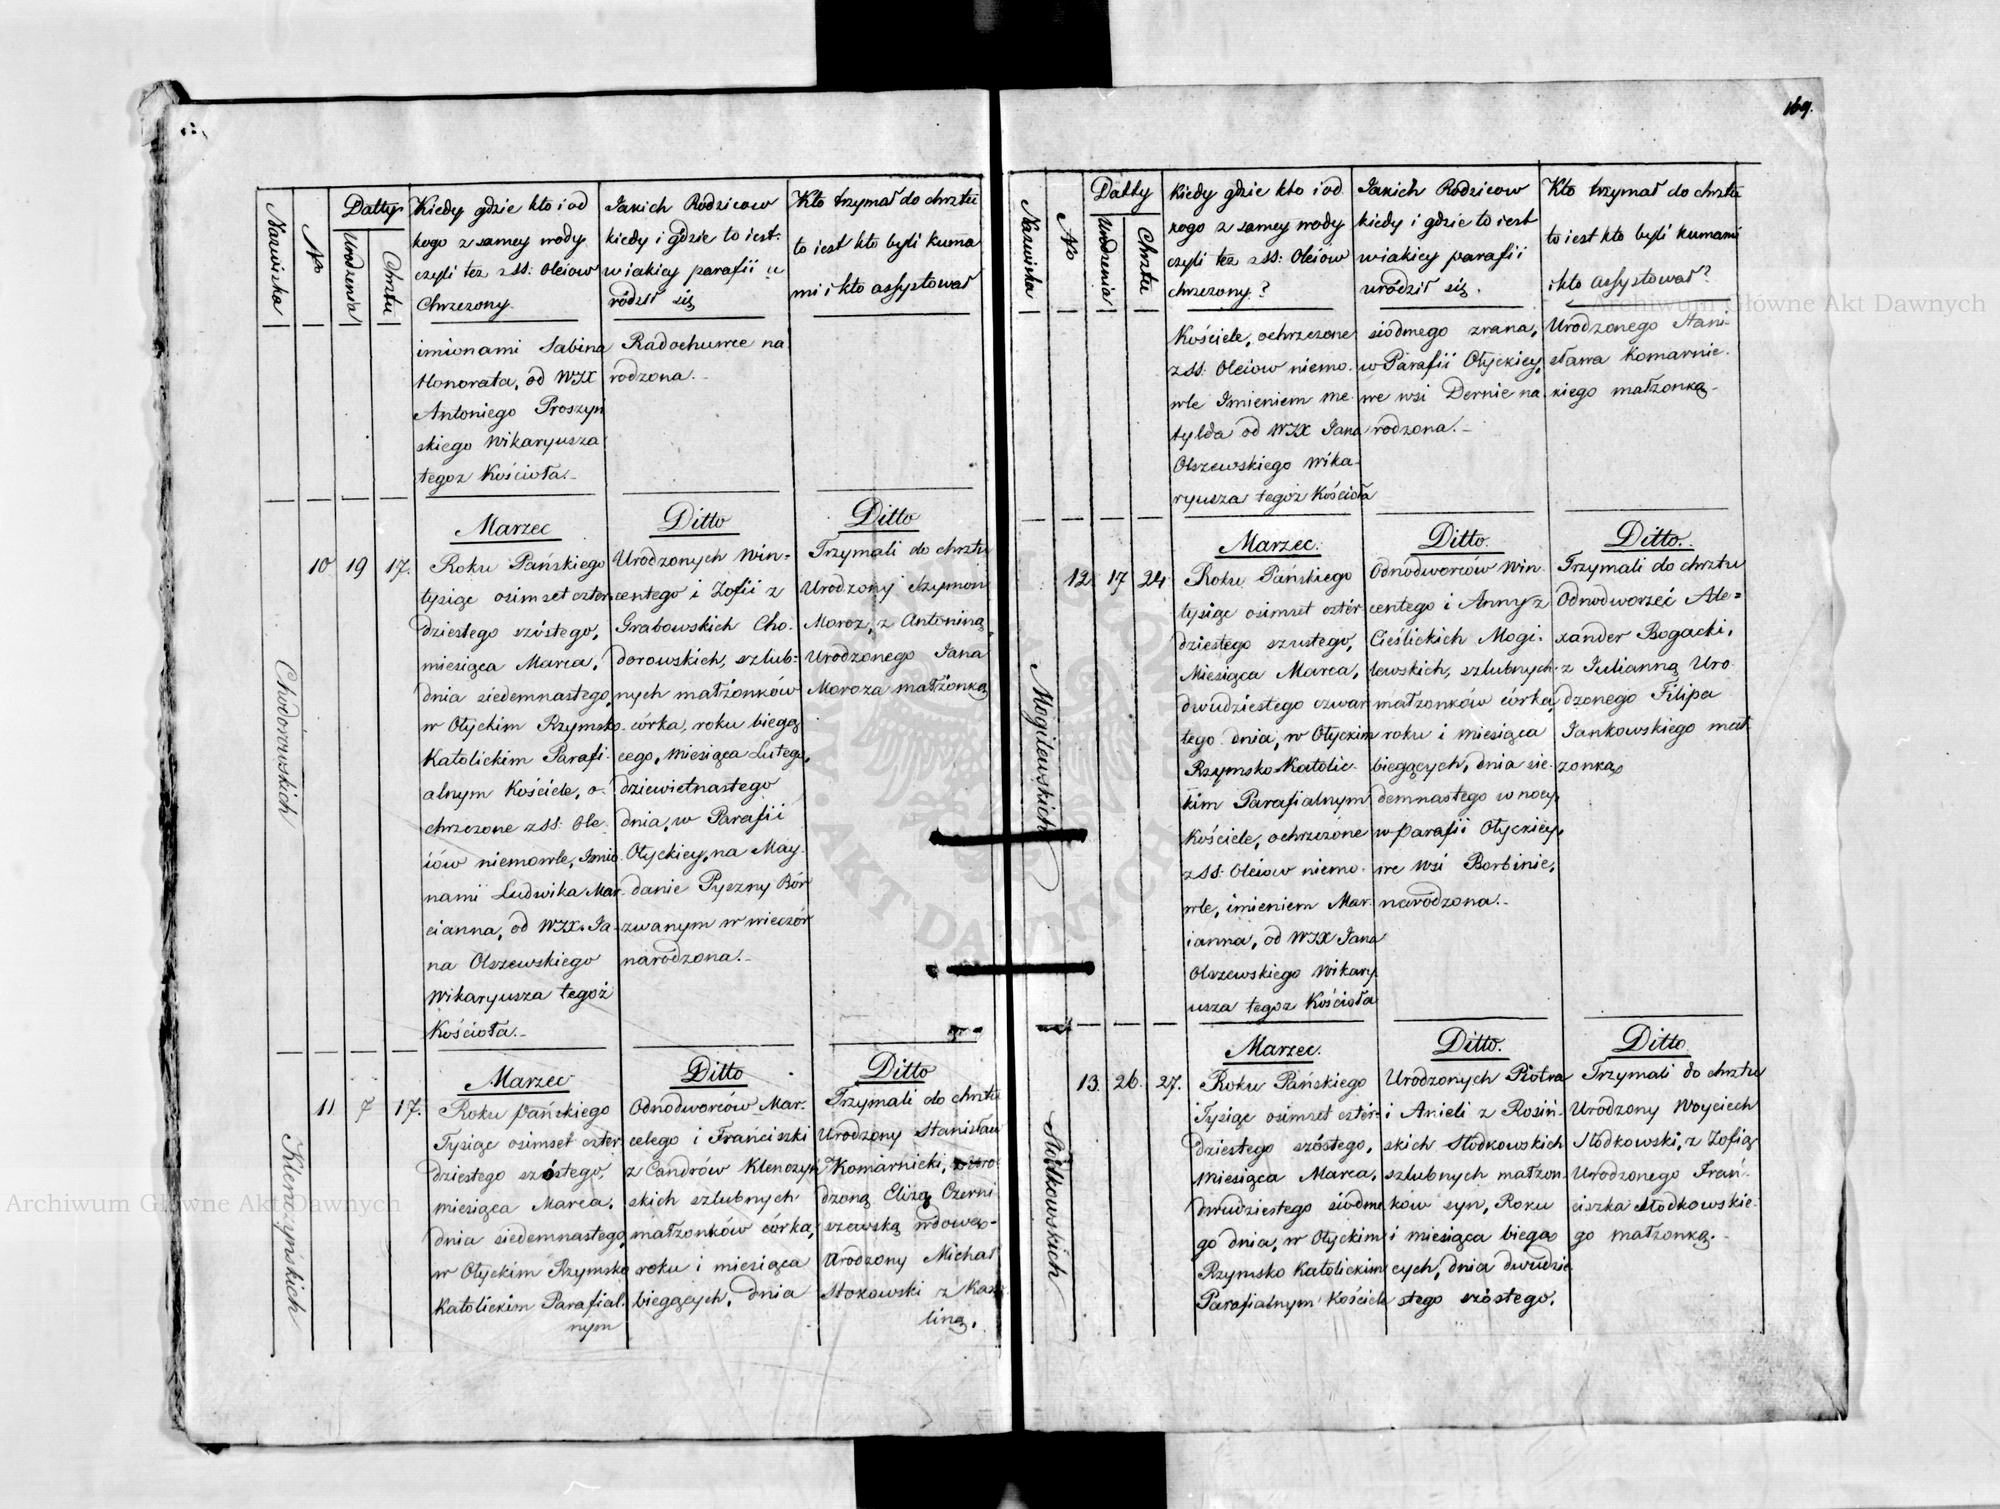 169.
Nazwiska
No
Datty
Urodzenia
Chrztu
Kiedy gdzie kto i od
kogo z samey wody
czyli też z SS: Oleiow
Chrzczony.
Jakich Rodzicow
kiedy i gdzie to iest
w iakiey parafii u
rodził się
Kto trzymał do chrztu
to iest kto byli kuma
mi i kto assystował
imionami Sabina
Honorata, od WJX
Antoniego Proszyn
skiego Wikaryusza
tegoz Kościoła.-
Radochuwce na
rodzona.-
Chodorowskich
10
19
17.
Marzec
Roku Pańskiego
tysiąc osimset czter
dziestego szóstego,
miesiąca Marca,
dnia siedemnastego,
w Ołyckim Rzymsko.
Katolickim Parafi-
alnym Kościele, o-
chrzczone z SS: Ole
iów niemowle, Imio
nami Ludwika Mar
cianna, od WJX. Ja-
na Olszewskiego
Wikaryusza tegoż
Kościoła.-
Ditto
Urodzonych Win=
centego i Zofii z
Grabowskich Cho.
dorowskich, szlub-
nych małżonków
córka, roku biegą
cego, miesiąca Lutego,
dziewietnastego
dnia, w Parafii
Ołyckiey, na May-
danie Pyszny Bór
zwanym w wieczór
narodzona.-
Ditto
Trzymali do chrztu
Urodzony Szymon
Moroz, z Antoniną,
Urodzonego Jana
Moroza małżonką
Klenczyńskich
11
7
17.
Marzec
Roku pańskiego
Tysiąc osimset czter
dziestego szóstego,
miesiąca Marca,
dnia siedemnastego,
w Ołyckim Rzymsko
Katolickim Parafial.
nym
Ditto
Odnodworców Mar.
celego i Franciszki
z Candrów Klenczyń
skich szlubnych
małżonków córka,
roku i miesiąca
biegących, dnia
Ditto
Trzymali do chrztu
Urodzony Stanisław
Komarnicki, z Uro
dzoną Elizą Czerni
szewską wdową-
Urodzony Michał
Stokowski z Kar
liną.
Nazwiska
No
Datty
Urodzenia
Chrztu
Kiedy gdzie kto i od
kogo z samey wody
czyli też z SS: Oleiow
chrzczony?
Jakich Rodzicow
kiedy i gdzie to iest
w iakiey parafii
uródził się.
Kto trzymał do chrztu
to iest kto byli kumami
i kto assystował?
Kościele, ochrzczone
z SS: Oleiow niemo.
wle Imieniem Me
tylda od WJX Jana
Olszewskiego Wika-
ryusza tegoż Kościoła
siodmego zrana,
w Parafii Ołyckiey,
we wsi Dernie na
rodzona.-
Urodzonego Stani-
sława Komarnic.
kiego małżonką-
Mogilewskich
12.
17
24.
Marzec.
Roku Pańskiego
tysiąc osimset cztér
dziestego szustego,
Miesiąca Marca,
dwudziestego czwar
tego dnia, w Ołyckim
Rzymsko-Katolic-
kim Parafialnym
Kościele, ochrzczone
z SS: Oleiow niemo-
wle, imieniem Mar
ianna, od WJX Jana
Olszewskiego Wikary
usza tegoz Kościoła
Ditto.
Odnodworców Win
centego i Anny z
Cieślickich Mogi-
lewskich, szlubnych
małżonków córka,
roku i miesiąca
biegących, dnia sie-
demnastego w nocy,
w parafii Ołyckiey,
we wsi Borbinie,
narodzona.-
Ditto.
Trzymali do chrztu
Odnodworzec Ale=
xander Bogacki,
z Julianną Uro-
dzonego Filipa
Jankowskiego mał-
zonką
Słodkowskich
13.
26.
27.
Marzec.
Roku Pańskiego
Tysiąc osimset cztér-
dziestego szóstego,
Miesiąca Marca,
dwudziestego siódme
go dnia, w Ołyckim
Rzymsko Katolickim
Parafialnym Kościele
Ditto.
Urodzonych Piotra
i Anieli z Rosiń-
skich Słodkowskich
szlubnych małzon-
ków syn, Roku
i miesiąca biegą
cych, dnia dwudzie
stego szóstego,
Ditto
Trzymali do chrztu
Urodzony Woyciech
Słodkowski, z Zofią
Urodzonego Fran-
ciszka Słodkowskie-
go małzonką.-
Archiwum Główne Akt Dawnych
Archiwum Główne Akt Dawnych